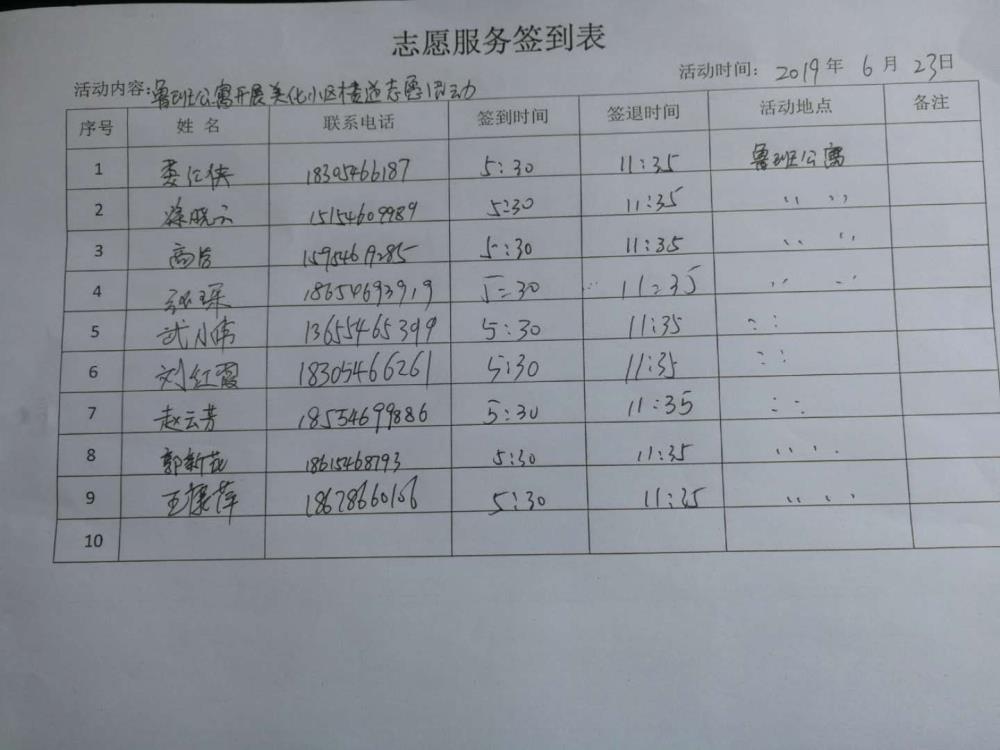 志愿服务签到表
活动内容:鲁班公寓开展美化小区楼道志愿活动 活动时间: 2019年 6月 23日
序号 姓名 联系电话 签到时间 签退时间 活动地点 备注
1 娄仁侠 18305466187 5:30 11:35 鲁班公寓
2 徐晓云 15154609989 5:30 11:35 〃 〃
3 高岩 15954619285 5:30 11:35 〃 〃
4 张琛 18654693919 5:30 11:35 〃 〃
5 武小伟 13655465399 5:30 11:35 〃
6 刘红霞 18305466261 5:30 11:35 〃
7 赵云芳 18554699886 5:30 11:35 〃
8 郭新花 18615468793 5:30 11:35 〃 〃
9 王 萍 18678660106 5:30 11:35 〃 〃
10